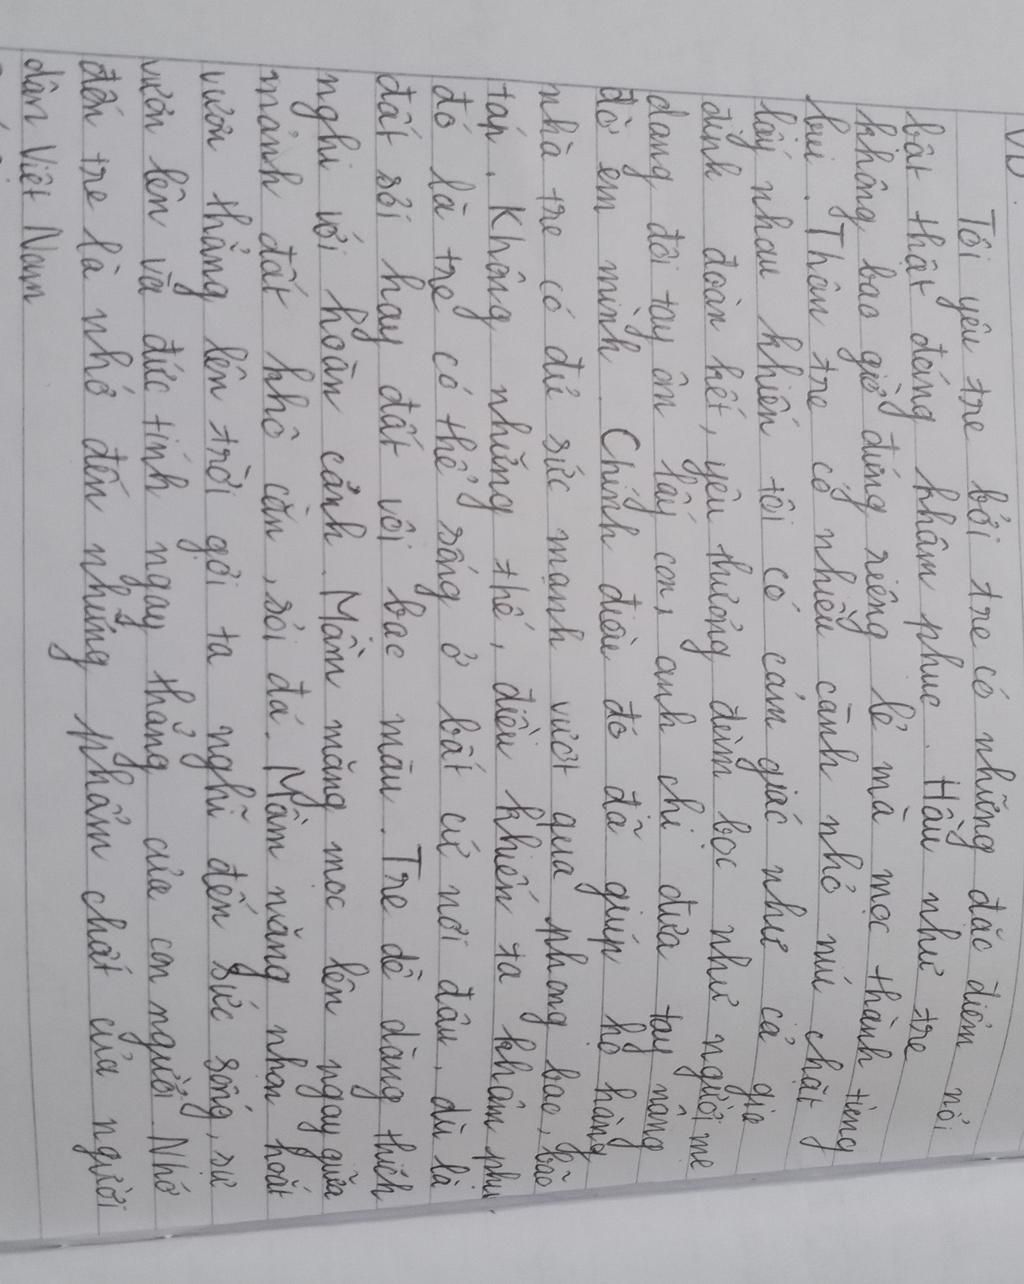 VD
Tôi yêu tre bởi tre có những đặc điểm nổi
bật thật đáng khâm phục. Hầu như tre
không bao giờ đứng riêng lẻ mà mọc thành từng
bụi. Thân tre có nhiều cành nhỏ níu chặt
lấy nhau khiến tôi có cảm giác như cả gia
đình đoàn kết, yêu thương đùm bọc như người mẹ
dang đôi tay ôm lấy con, anh chị đưa tay nâng
đỡ em mình. Chính điều đó đã giúp họ hàng
nhà tre có đủ sức mạnh vượt qua phong bao, bão
táp. Không những thế, điều khiến ta khâm phục
đó là tre có thể sống ở bất cứ nơi đâu, dù là
đất sỏi hay đất vôi bạc màu. Tre dễ dàng thích
nghi với hoàn cảnh. Mầm măng mọc lên ngay giữa
mảnh đất khô cằn, sỏi đá. Mầm năng nhọn hoắt
vươn thẳng lên trời gợi ta nghĩ đến sức sống, sự
vươn lên và đức tính ngay thẳng của con người. Nhớ
đến tre là nhớ đến những phẩm chất của người
dân Việt Nam